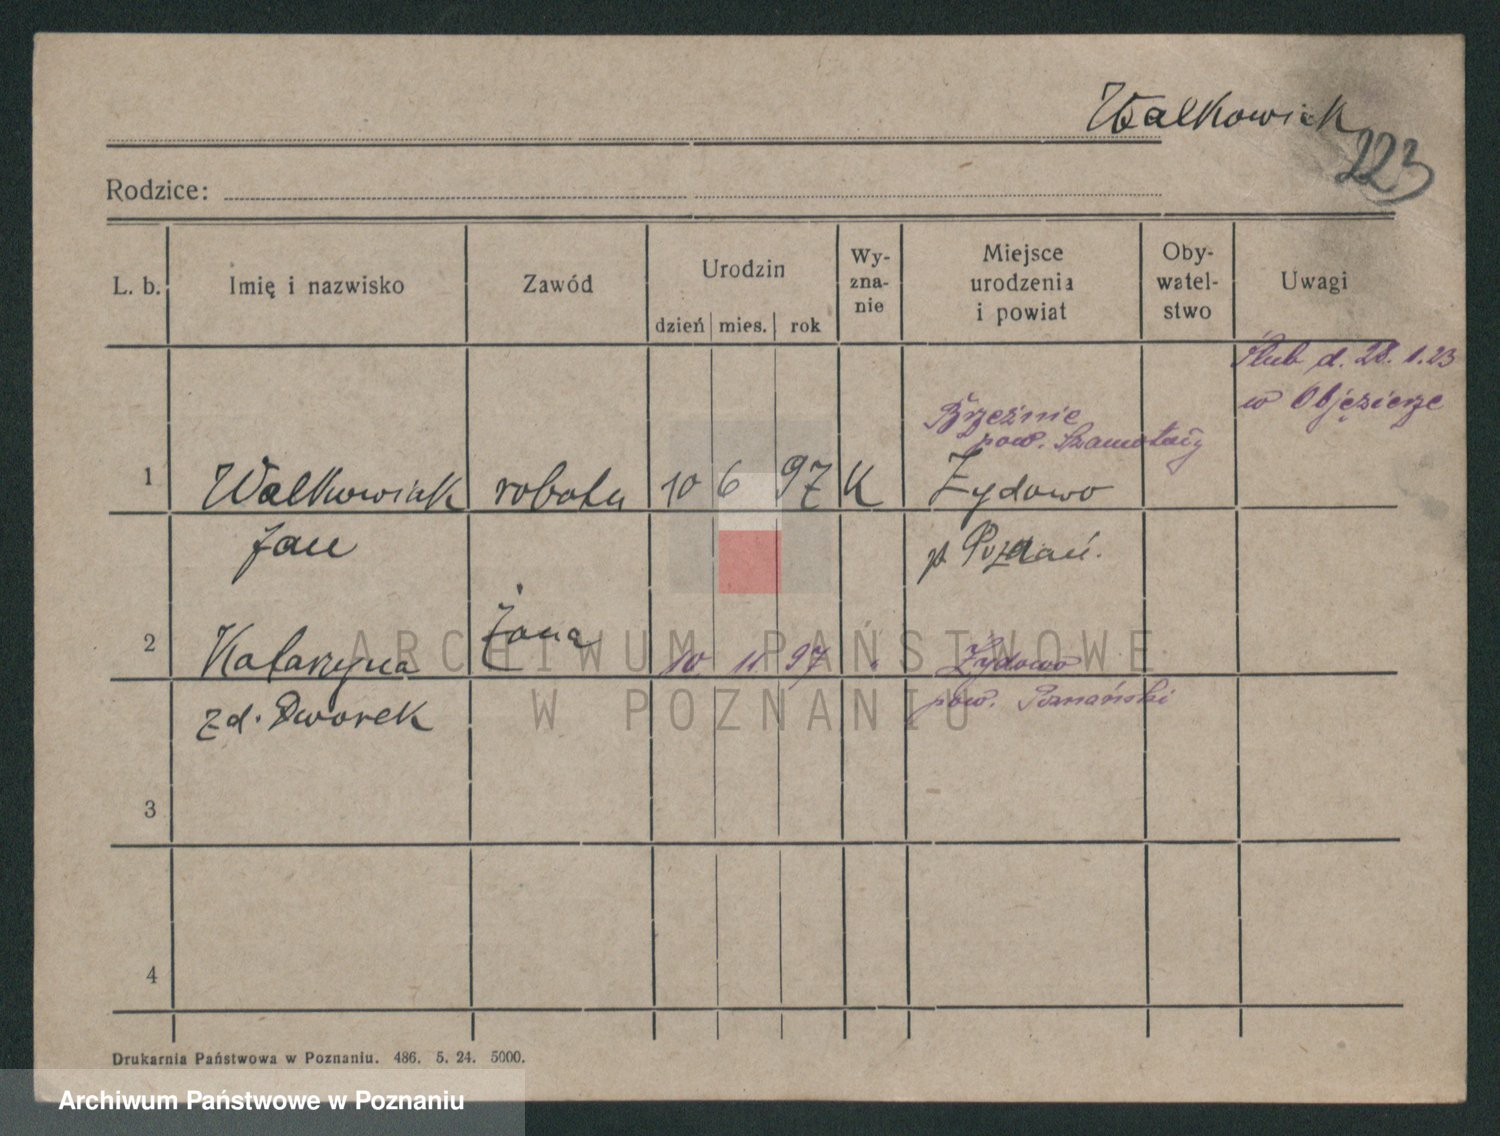 Walkowiak
223
Rodzice:
L. b.
Imię i nazwisko
Zawód
Urodzin
dzień mies. rok
Wy-
zna-
nie
Miejsce
urodzenia
i powiat
Oby-
watel-
stwo
Uwagi
Ślub d. 28. 1. 23
w Objęzierze
Brzeźnie
pow. Szamotuły
1 Walkowiak robotn 10 6 97 K Żydowo
Jan p. Poznań.
2 Katarzyna Żona 10 11 97 " Żydowo
zd. Dworek pow. Poznański
3
4
ARCHIWUM PAŃSTWOWE
W POZNANIU
Drukarnia Państwowa w Poznaniu. 486. 5. 24. 5000.
Archiwum Państwowe w Poznaniu